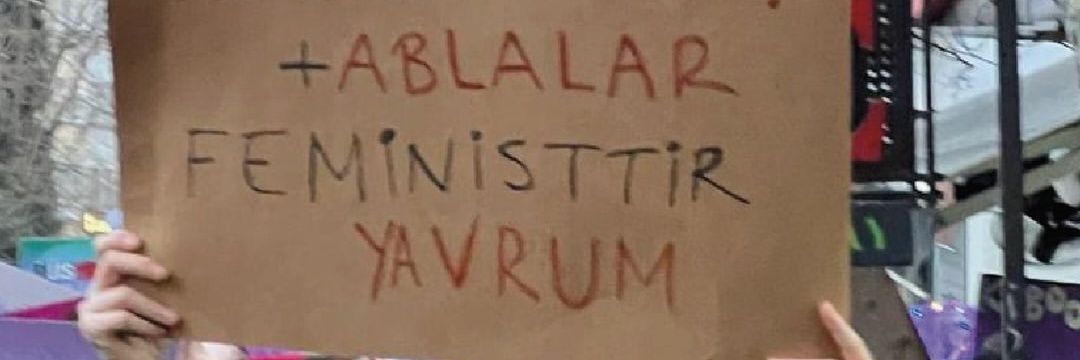 +ABLALAR
FEMİNİSTTİR
YAVRUM